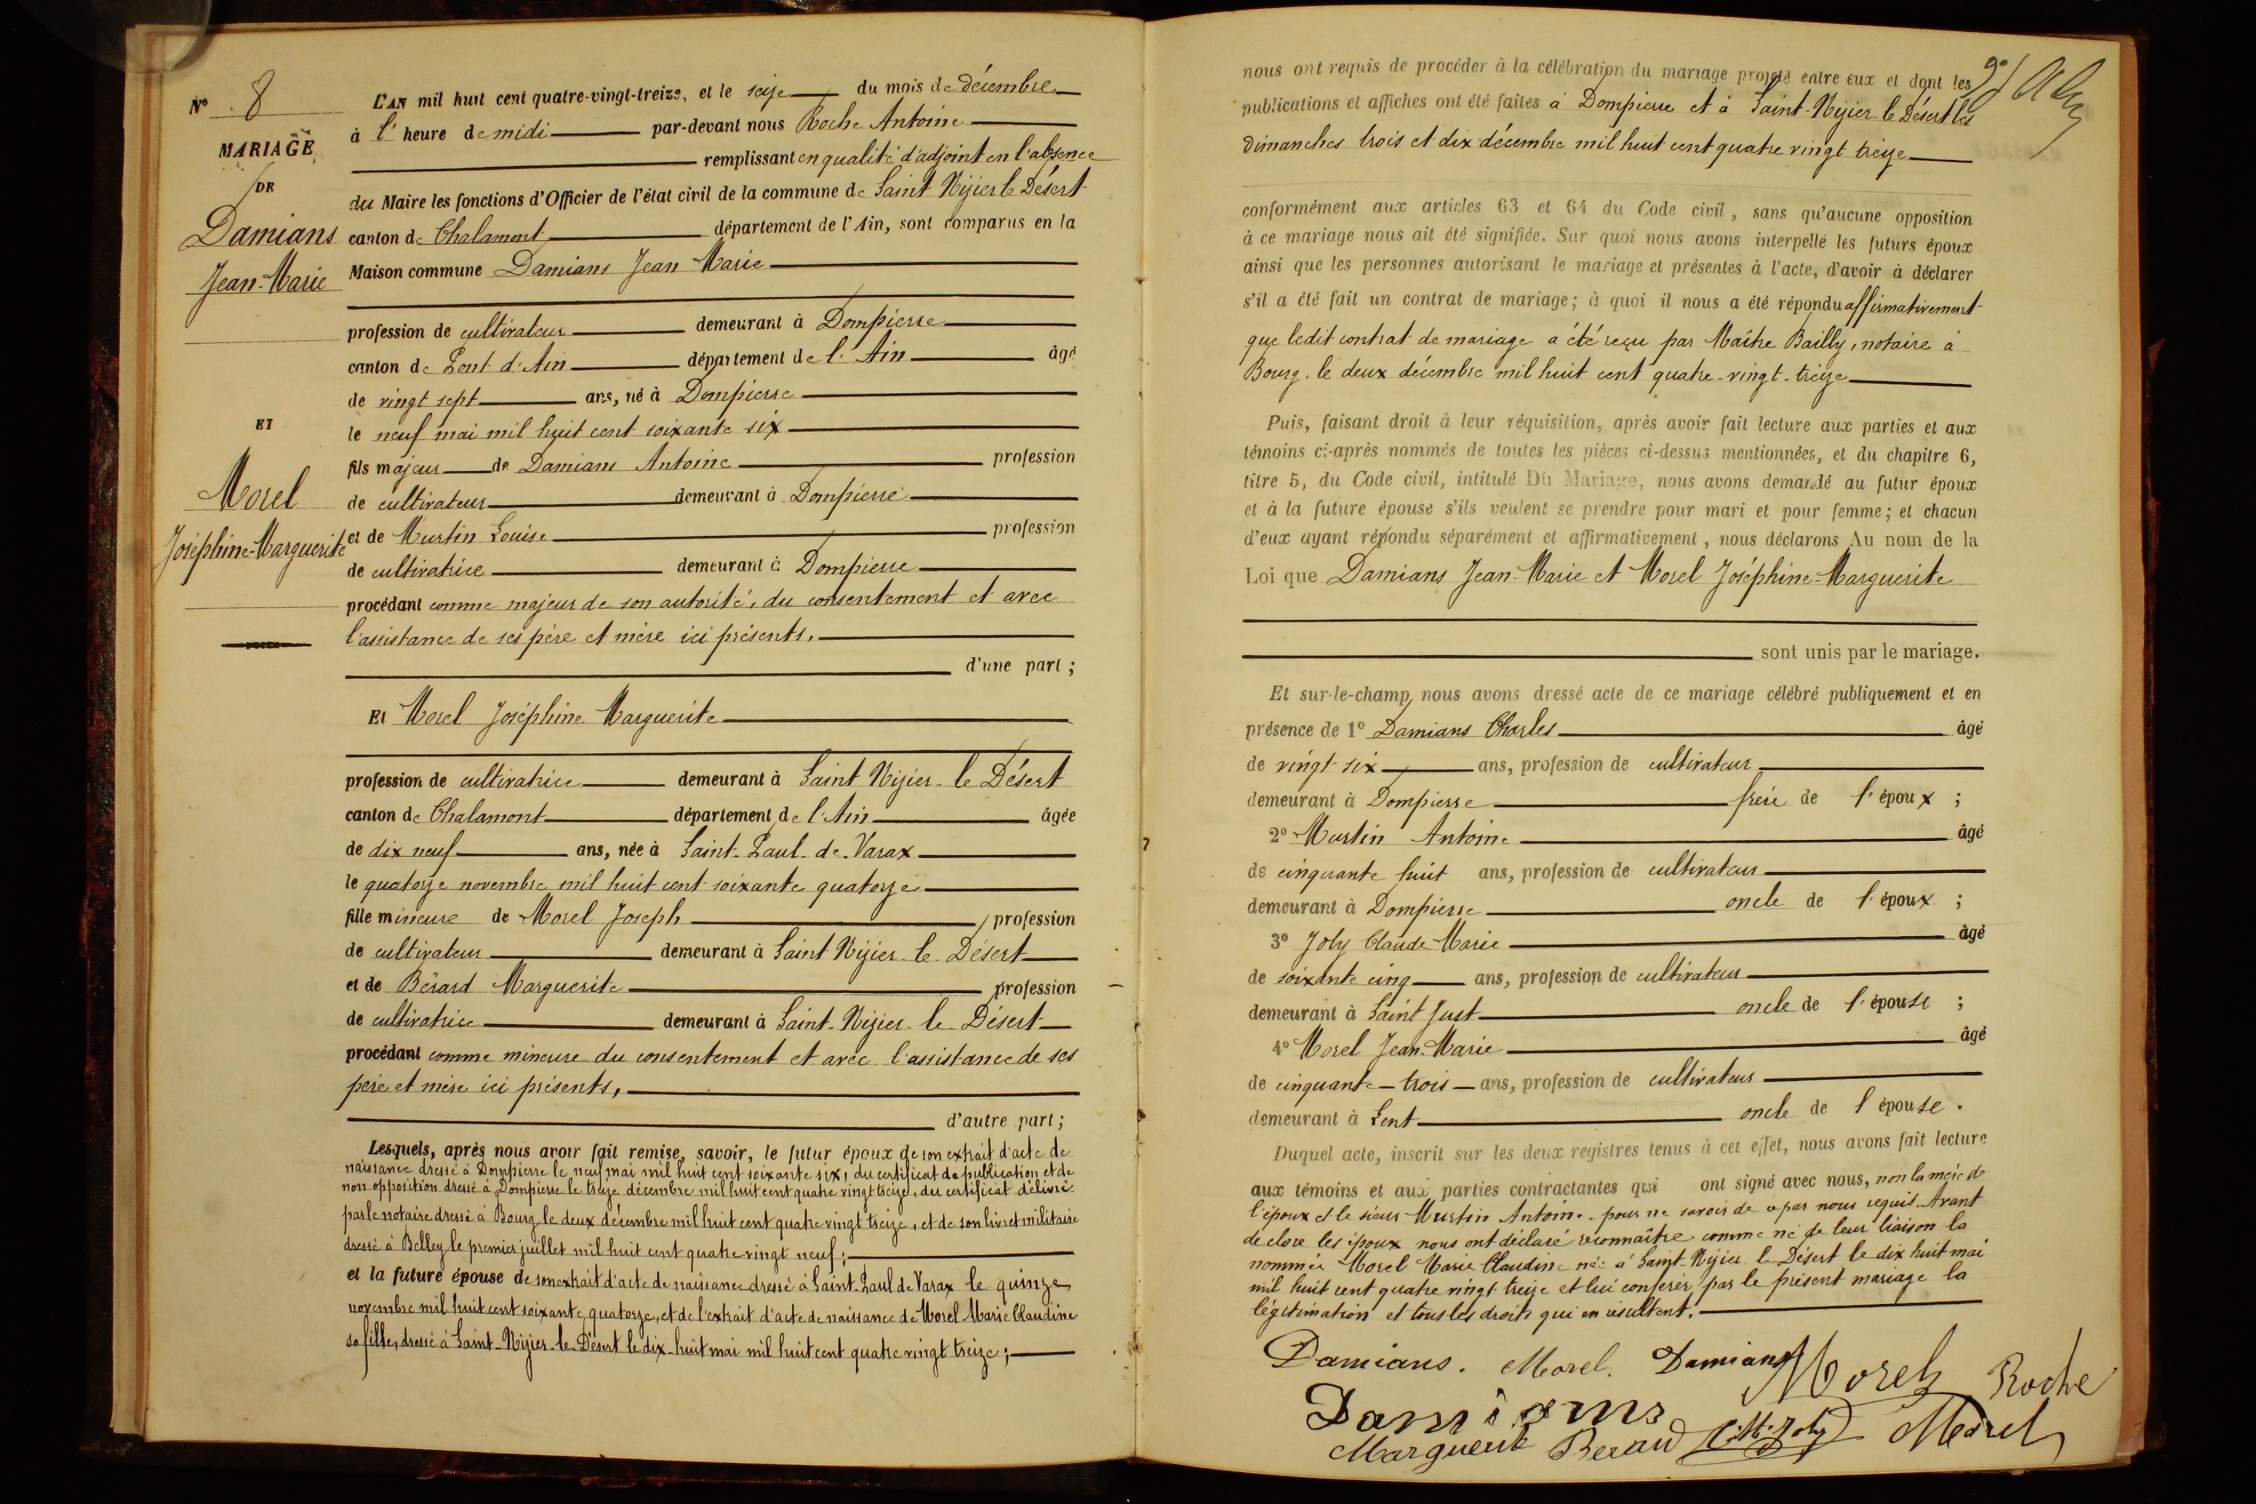 N° 8
MARIAGE
DE
Damians
Jean-Marie
ET
Morel
Joséphine-Marguerite
L'AN mil huit cent quatre-vingt-treize, et le seize du mois de décembre
à l' heure de midi par-devant nous Roche Antoine
remplissant en qualité d'adjoint en l'absence
du Maire les fonctions d'Officier de l'état civil de la commune de Saint Nizier le Désert
canton de Chalamont département de l'Ain, sont comparus en la
Maison commune Damians Jean Marie
profession de cultivateur demeurant à Dompierre
canton de Pont d'Ain département de l'Ain âgé
de vingt sept ans, né à Dompierre
le neuf mai mil huit cent soixante six
fils majeur de Damians Antoine profession
de cultivateur demeurant à Dompierre
et de Murtin Louise profession
de cultivatrice demeurant à Dompierre
procédant comme majeur de son autorité, du consentement et avec
l'assistance de ses père et mère ici présents,
d'une part ;
Et Morel Joséphine Marguerite
profession de cultivatrice demeurant à Saint Nizier-le Désert
canton de Chalamont département de l'Ain âgée
de dix neuf ans, née à Saint-Paul-de-Varax
le quatorze novembre mil huit cent soixante quatorze
fille mineure de Morel Joseph profession
de cultivateur demeurant à Saint Nizier-le-Désert
et de Bérard Marguerite profession
de cultivatrice demeurant à Saint-Nizier-le-Désert
procédant comme mineure du consentement et avec l'assistance de ses
père et mère ici présents,
d'autre part ;
Lesquels, après nous avoir fait remise, savoir, le futur époux de son extrait d'acte de
naissance dressé à Dompierre le neuf mai mil huit cent soixante six, du certificat de publication et de
non opposition dressé à Dompierre le treize décembre mil huit cent quatre vingt treize, du certificat délivré
par le notaire dressé à Bourg le deux décembre mil huit cent quatre vingt treize, et de son livret militaire
dressé à Belley le premier juillet mil huit cent quatre vingt neuf ;
et la future épouse de son extrait d'acte de naissance dressé à Saint-Paul de Varax le quinze
novembre mil huit cent soixante quatorze, et de l'extrait d'acte de naissance de Morel Marie Claudine
sa fille, dressé à Saint-Nizier-le-Désert le dix-huit mai mil huit cent quatre vingt treize ;
nous ont requis de procéder à la célébration du mariage projeté entre eux et dont les
publications et affiches ont été faites à Dompierre et à Saint-Nizier-le Désert les
dimanches trois et dix décembre mil huit cent quatre vingt treize
conformément aux articles 63 et 64 du Code civil, sans qu'aucune opposition
à ce mariage nous ait été signifiée. Sur quoi nous avons interpellé les futurs époux
ainsi que les personnes autorisant le mariage et présentes à l'acte, d'avoir à déclarer
s'il a été fait un contrat de mariage ; à quoi il nous a été répondu affirmativement
que ledit contrat de mariage a été reçu par Maître Bailly, notaire à
Bourg, le deux décembre mil huit cent quatre-vingt-treize
Puis, faisant droit à leur réquisition, après avoir fait lecture aux parties et aux
témoins ci-après nommés de toutes les pièces ci-dessus mentionnées, et du chapitre 6,
titre 5, du Code civil, intitulé Du Mariage, nous avons demandé au futur époux
et à la future épouse s'ils veulent se prendre pour mari et pour femme ; et chacun
d'eux ayant répondu séparément et affirmativement, nous déclarons Au nom de la
Loi que Damians Jean-Marie et Morel Joséphine-Marguerite
sont unis par le mariage.
Et sur-le-champ, nous avons dressé acte de ce mariage célébré publiquement et en
présence de 1° Damians Charles âgé
de vingt six ans, profession de cultivateur
demeurant à Dompierre frère de l'époux ;
2° Murtin Antoine âgé
de cinquante huit ans, profession de cultivateur
demeurant à Dompierre oncle de l'époux ;
3° Joly Claude-Marie âgé
de soixante cinq ans, profession de cultivateur
demeurant à Saint Just oncle de l'épouse ;
4° Morel Jean-Marie âgé
de cinquante-trois ans, profession de cultivateur
demeurant à Lent oncle de l'épouse.
Duquel acte, inscrit sur les deux registres tenus à cet effet, nous avons fait lecture
aux témoins et aux parties contractantes qui ont signé avec nous, non la mère de
l'époux et le sieur Murtin Antoine pour ne savoir de ce par nous requis. Avant
de clore les époux nous ont déclaré reconnaître comme né de leur liaison la
nommée Morel Marie Claudine née à Saint-Nizier le Désert le dix huit mai
mil huit cent quatre vingt treize et lui conférer par le présent mariage la
légitimation et tous les droits qui en résultent.
Damians. Morel. Damians Morel Roche
Damians
Marguerite Berard C. M. Joly Morel